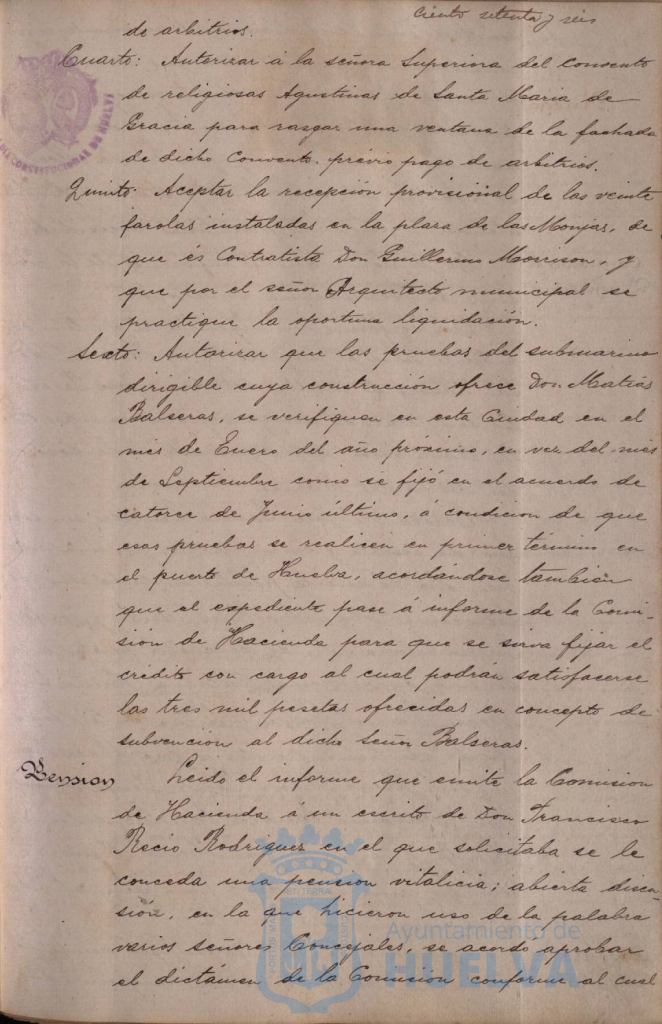 ciento setenta y seis
de arbitrios.
Cuarto: Autorizar á la señora Superiora del Convento
de religiosas Agustinas de Santa Maria de
Gracia para rasgar una ventana de la fachada
de dicho Convento, previo pago de arbitrios.
Quinto: Aceptar la recepción provisional de las veinte
farolas instaladas en la plaza de las Monjas, de
que és Contratista Don Guillermo Morrison, y
que por el señor Arquitecto municipal se
practique la oportuna liquidación.
Sexto: Autorizar que las pruebas del submarino
dirigible cuya construcción ofrece Don Matias
Balseras, se verifiquen en esta Ciudad en el
mes de Enero del año próximo, en vez del mes
de Septiembre como se fijó en el acuerdo de
catorce de Junio último, á condicion de que
esas pruebas se realicen en primer término en
el puerto de Huelva, acordándose también
que el expediente pase á informe de la Comi-
sión de Hacienda para que se sirva fijar el
crédito con cargo al cual podrán satisfacerse
las tres mil pesetas ofrecidas en concepto de
subvención al dicho señor Balseras.
Pension Leido el informe que emite la Comision
de Hacienda á un escrito de Don Francisco
Recio Rodriguez en el que solicitaba se le
conceda una pension vitalicia; abierta discu-
sión, en la que hicieron uso de la palabra
varios señores Concejales, se acordó aprobar
el dictámen de la Comision conforme al cual
CONSTITUCIONAL DE HUELVA
Ayuntamiento de
HUELVA